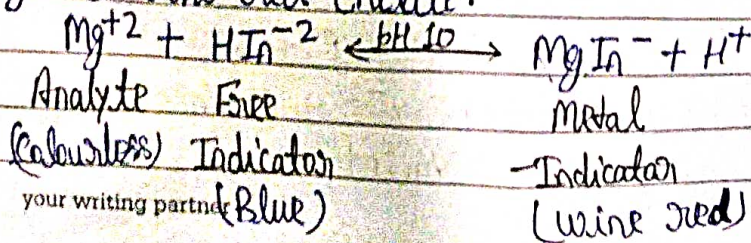 Mg+2 + HIn-2 <-pH 10-> MgIn- + H+
Analyte Free Metal
(Colourless) Indicator -Indicator
your writing partner (Blue) (wine red)